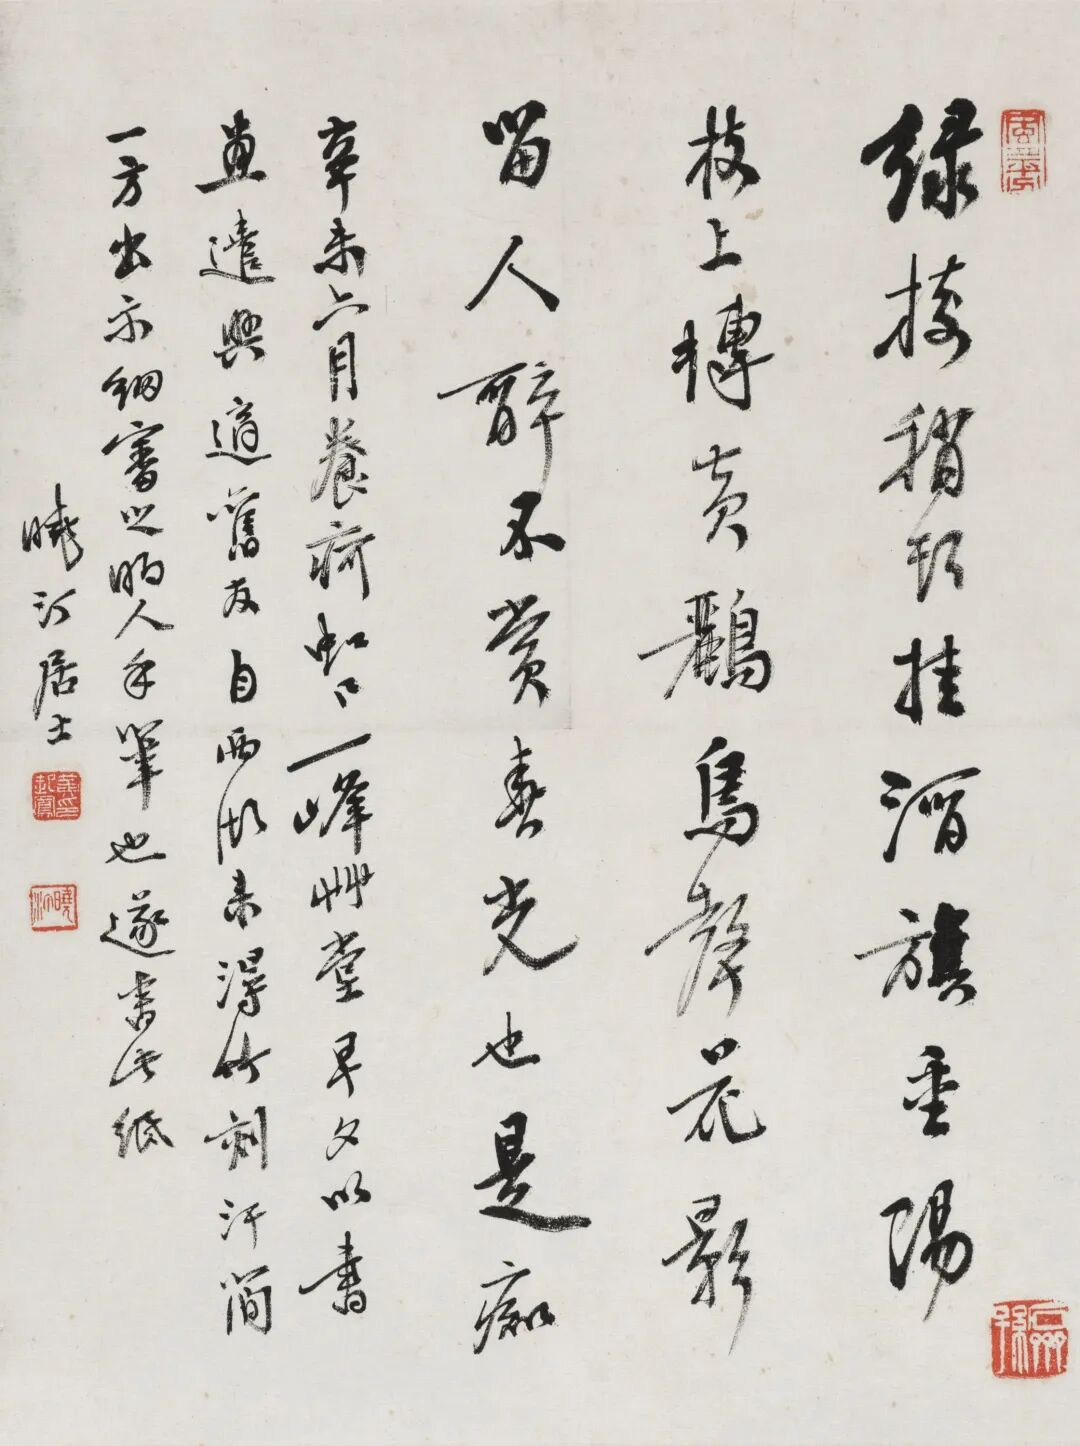 绿枝稍頭挂酒旗垂陽
枝上轉黄鸝鳥聲花影
留人醉不賞春光也是痴
辛未六月養疴虹口一峰艸堂早夕以書
畫遣興適舊友自西湖来得竹刻汗简
一方出示细審之明人手筆也遂書此紙
曉汀居士